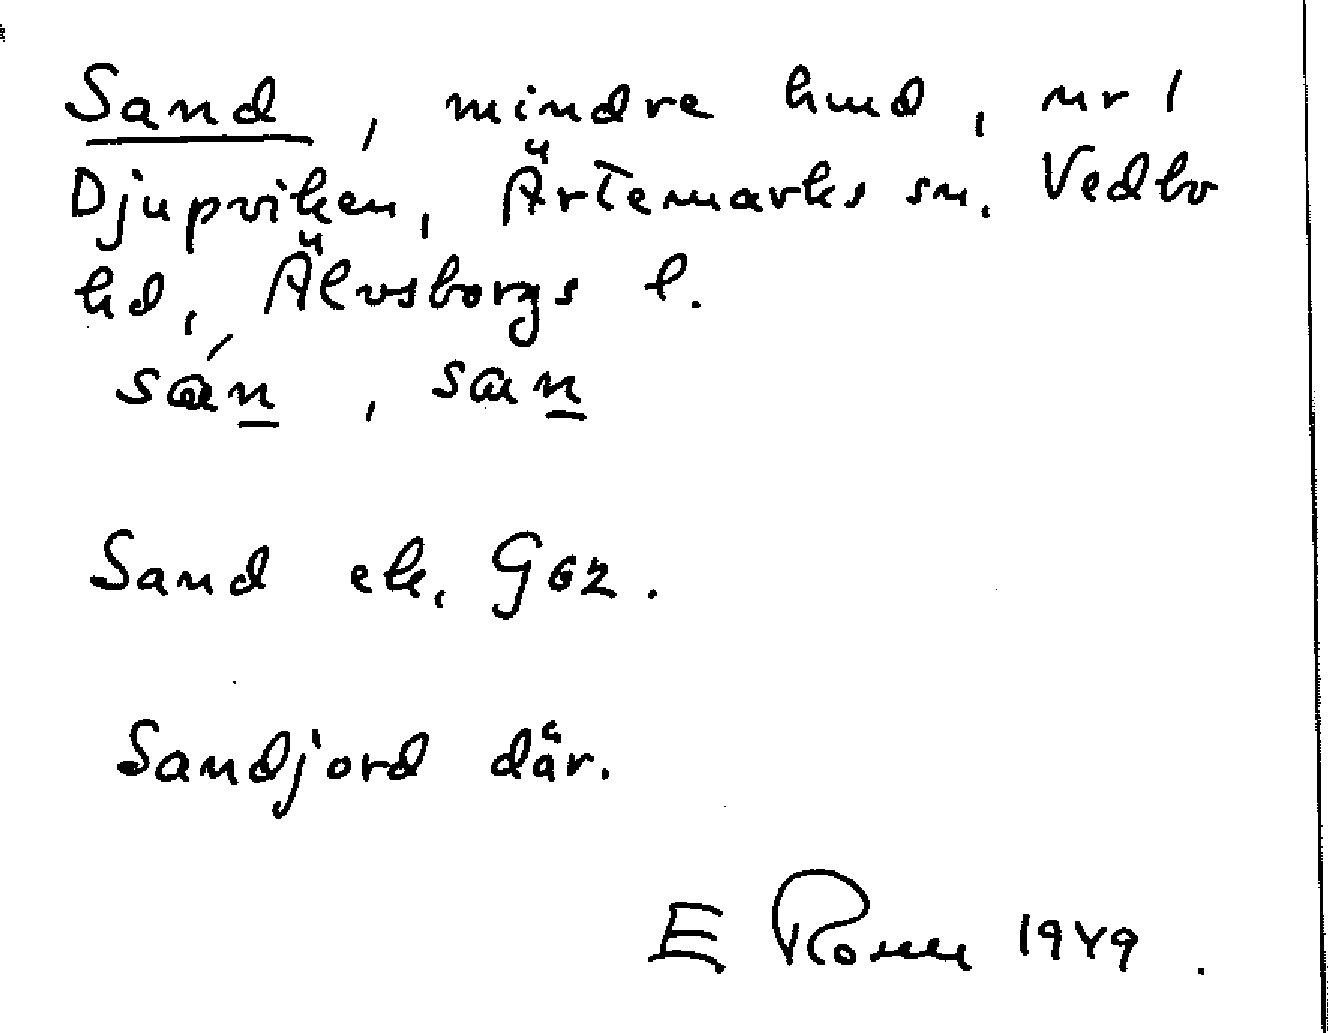 Sand, mindre hmd, nr 1
Djupviken, Ärtemarks sn. Vedbo
hd, Älvsborgs l.
sán, san
Sand ek. G62.
Sandjord där.
E 1949.